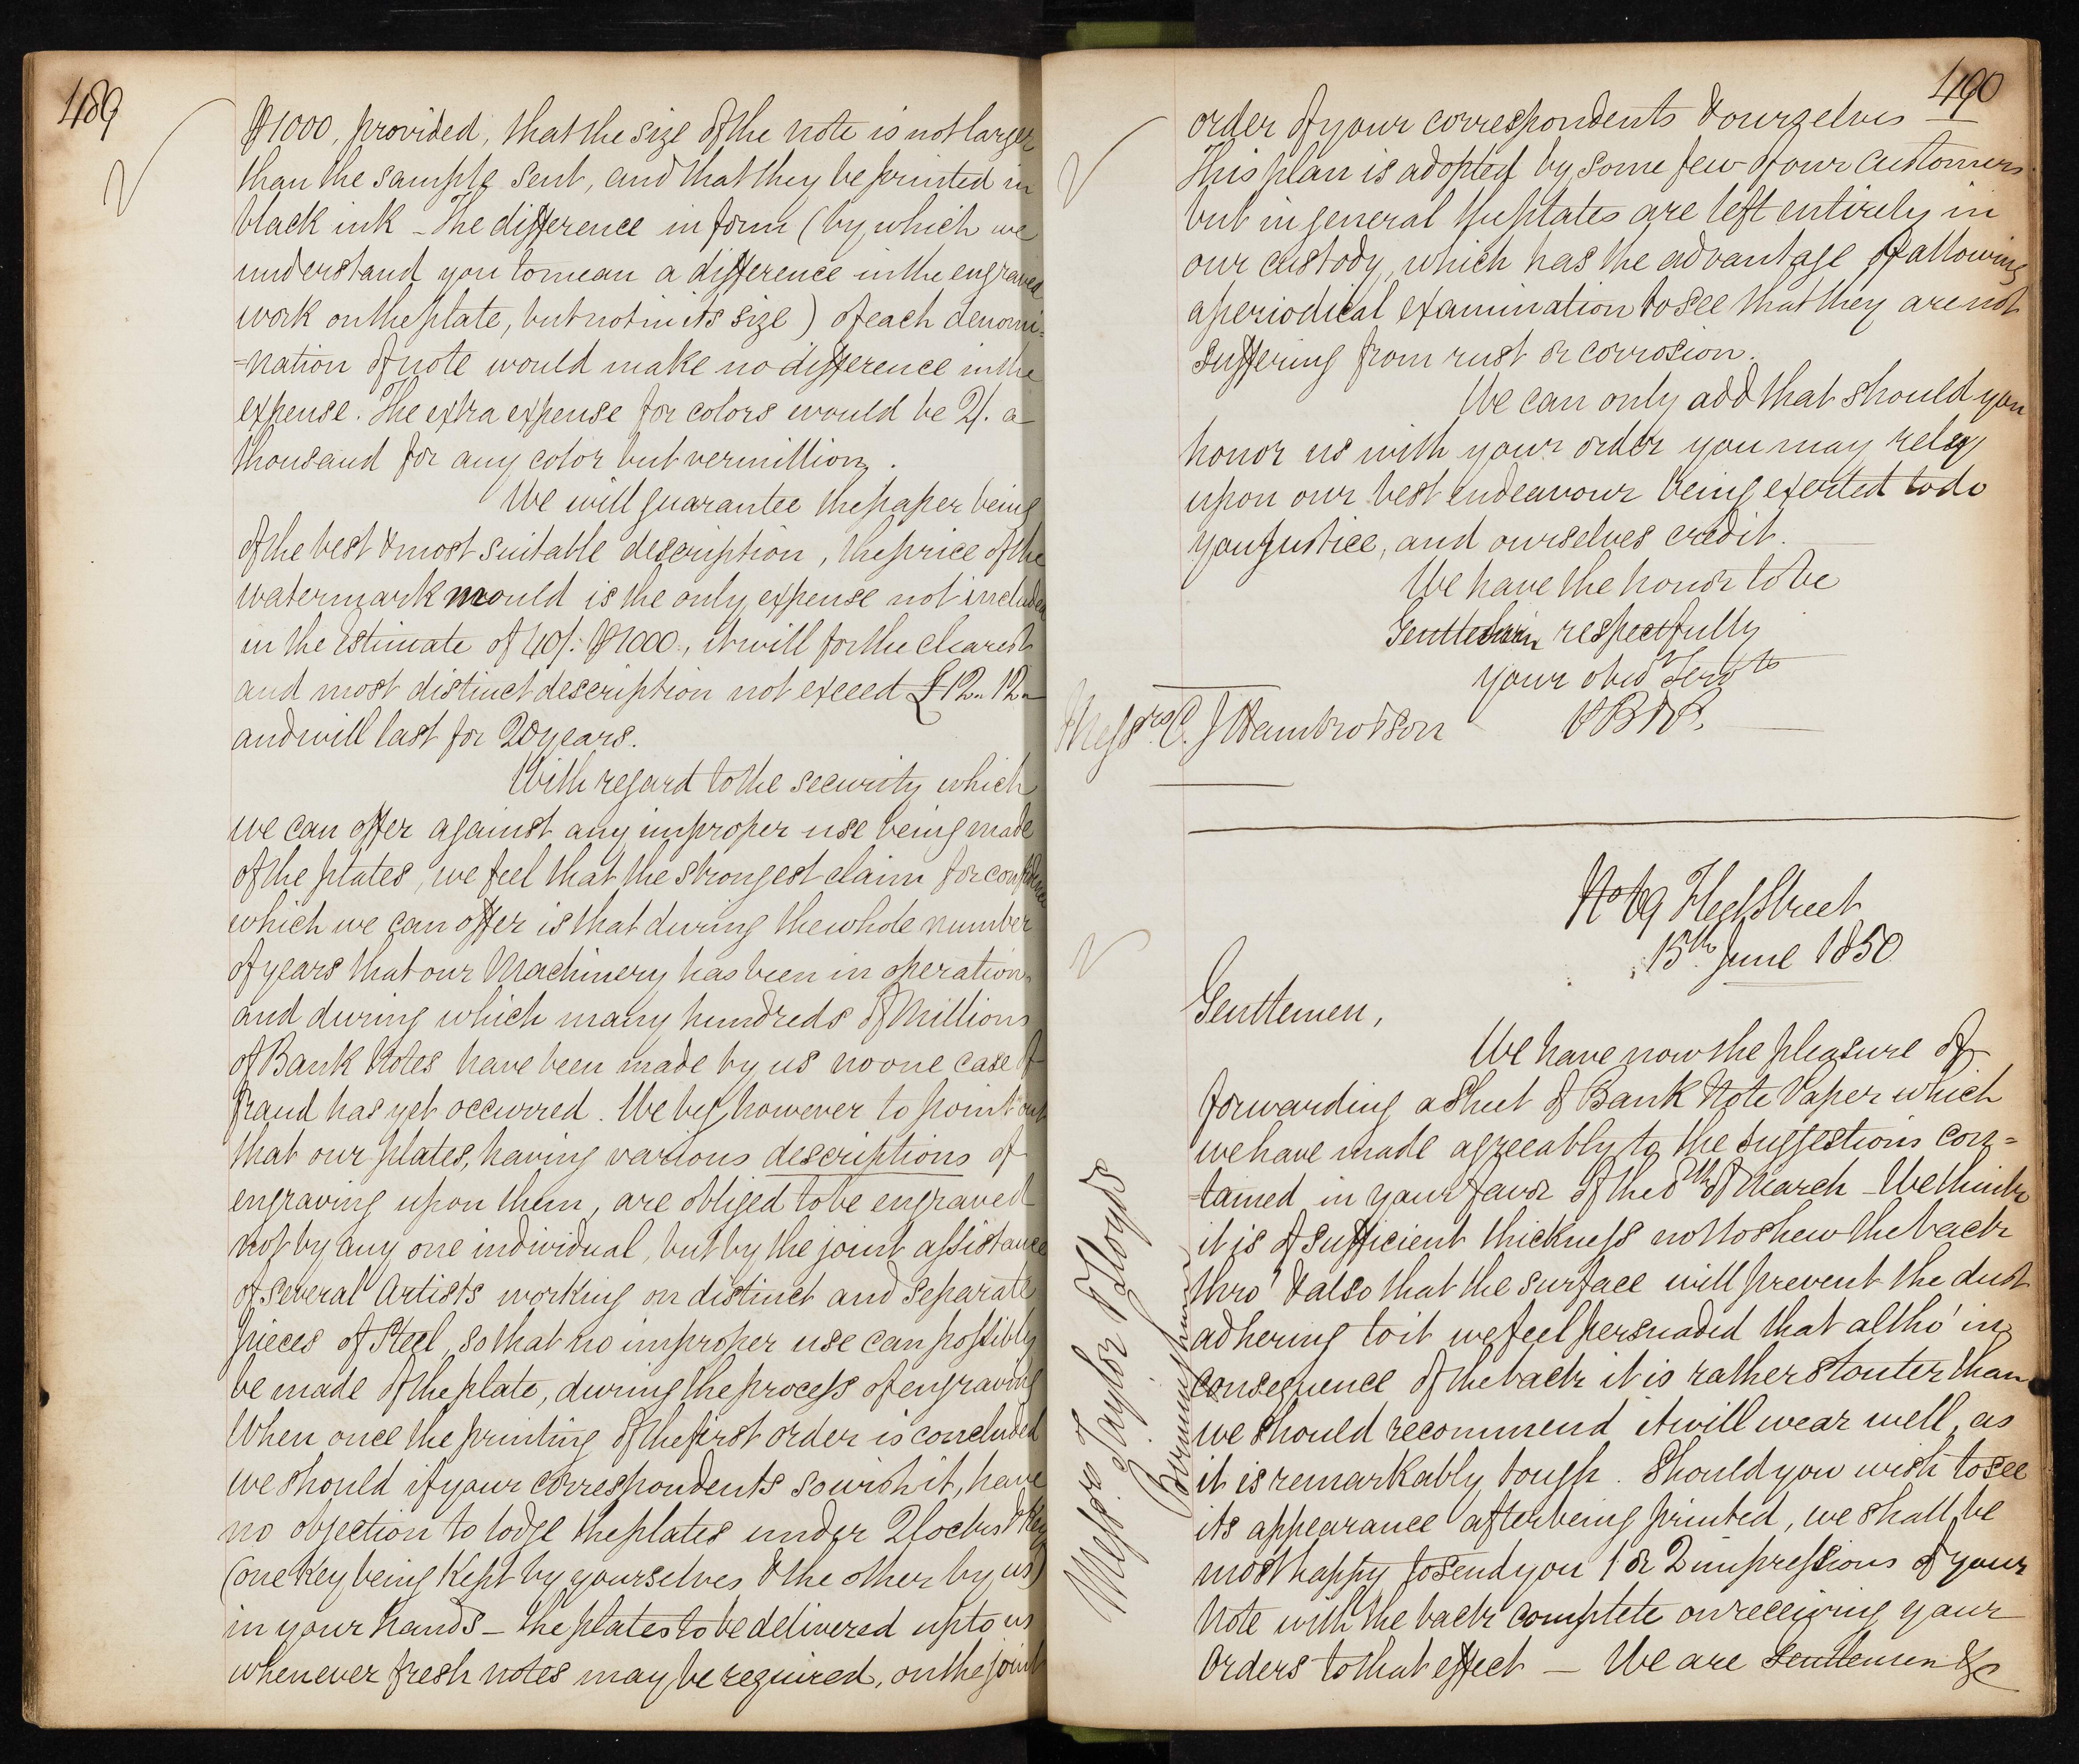 489
⅌ 1000, provided, that the size of the note is not larger
than the sample sent, and that they be printed in
black ink – The difference in form (by which we
understand you to mean a difference in the engraved
work on the plate, but not in its size) of each denomi=
=nation of note would make no difference in the
expense. The extra expense for colors would be 2/. a
thousand for any color but vermillion.
We will guarantee the paper being
of the best & most suitable description, the price of the
watermark mould is the only expense not included
in the Estimate of 40/. ⅌ 1000, it will for the clearest
and most distinct description not exceed £12 " 12 "
and will last for 20 years.
With regard to the security which
we can offer against any improper use being made
of the plates, we feel that the strongest claim for confidence
which we can offer is that during the whole number
of years that our Machinery has been in operation
and during which many hundreds of Millions
of Bank Notes have been made by us no one case of
fraud has yet occurred. We beg however to point out
that our plates, having various descriptions of
engraving upon them, are obliged to be engraved
not by any one individual, but by the joint assistance
of several Artists working on distinct and separate
pieces of Steel, so that no improper use can possibly
be made of the plate, during the process of engraving
When once the printing of the first order is concluded
we should if your correspondents so wish it, have
no objection to lodge the plates under 2 locks & Key
(one Key being Kept by yourselves & the other by us)
in your hands – the plates to be delivered up to us
whenever fresh notes may be required, on the joint
490
order of your correspondents & ourselves
This plan is adopted by some few of our Customers
but in general the plates are left entirely in
our custody, which has the advantage of allowing
a periodical examination to see that they are not
suffering from rust or corrosion.
We can only add that should you
honor us with your order you may rely
upon our best endeavour being exerted to do
you justice, and ourselves credit.
We have the honor to be
Gentlemen respectfully
your obdt Servts
PB&P.
Messrs C. J Hambro & Son
No 69 Fleet Street
15th June 1850
Gentlemen,
We have now the pleasure of
forwarding a Sheet of Bank Note Paper which
we have made agreeably to the suggestions con=
=tained in your favor of the 8th of March – We think
it is of sufficient thickness not to shew the back
thro' & also that the surface will prevent the dust
adhering to it we feel persuaded that altho' in
consequence of the back it is rather stouter than
we should recommend it will wear well, as
it is remarkably tough. Should you wish to see
its appearance after being printed, we shall be
most happy to send you 1 or 2 impressions of your
Note with the back complete on receiving your
Orders to that effect – We are Gentlemen &c
Messrs Taylor & Lloyds
Birmingham